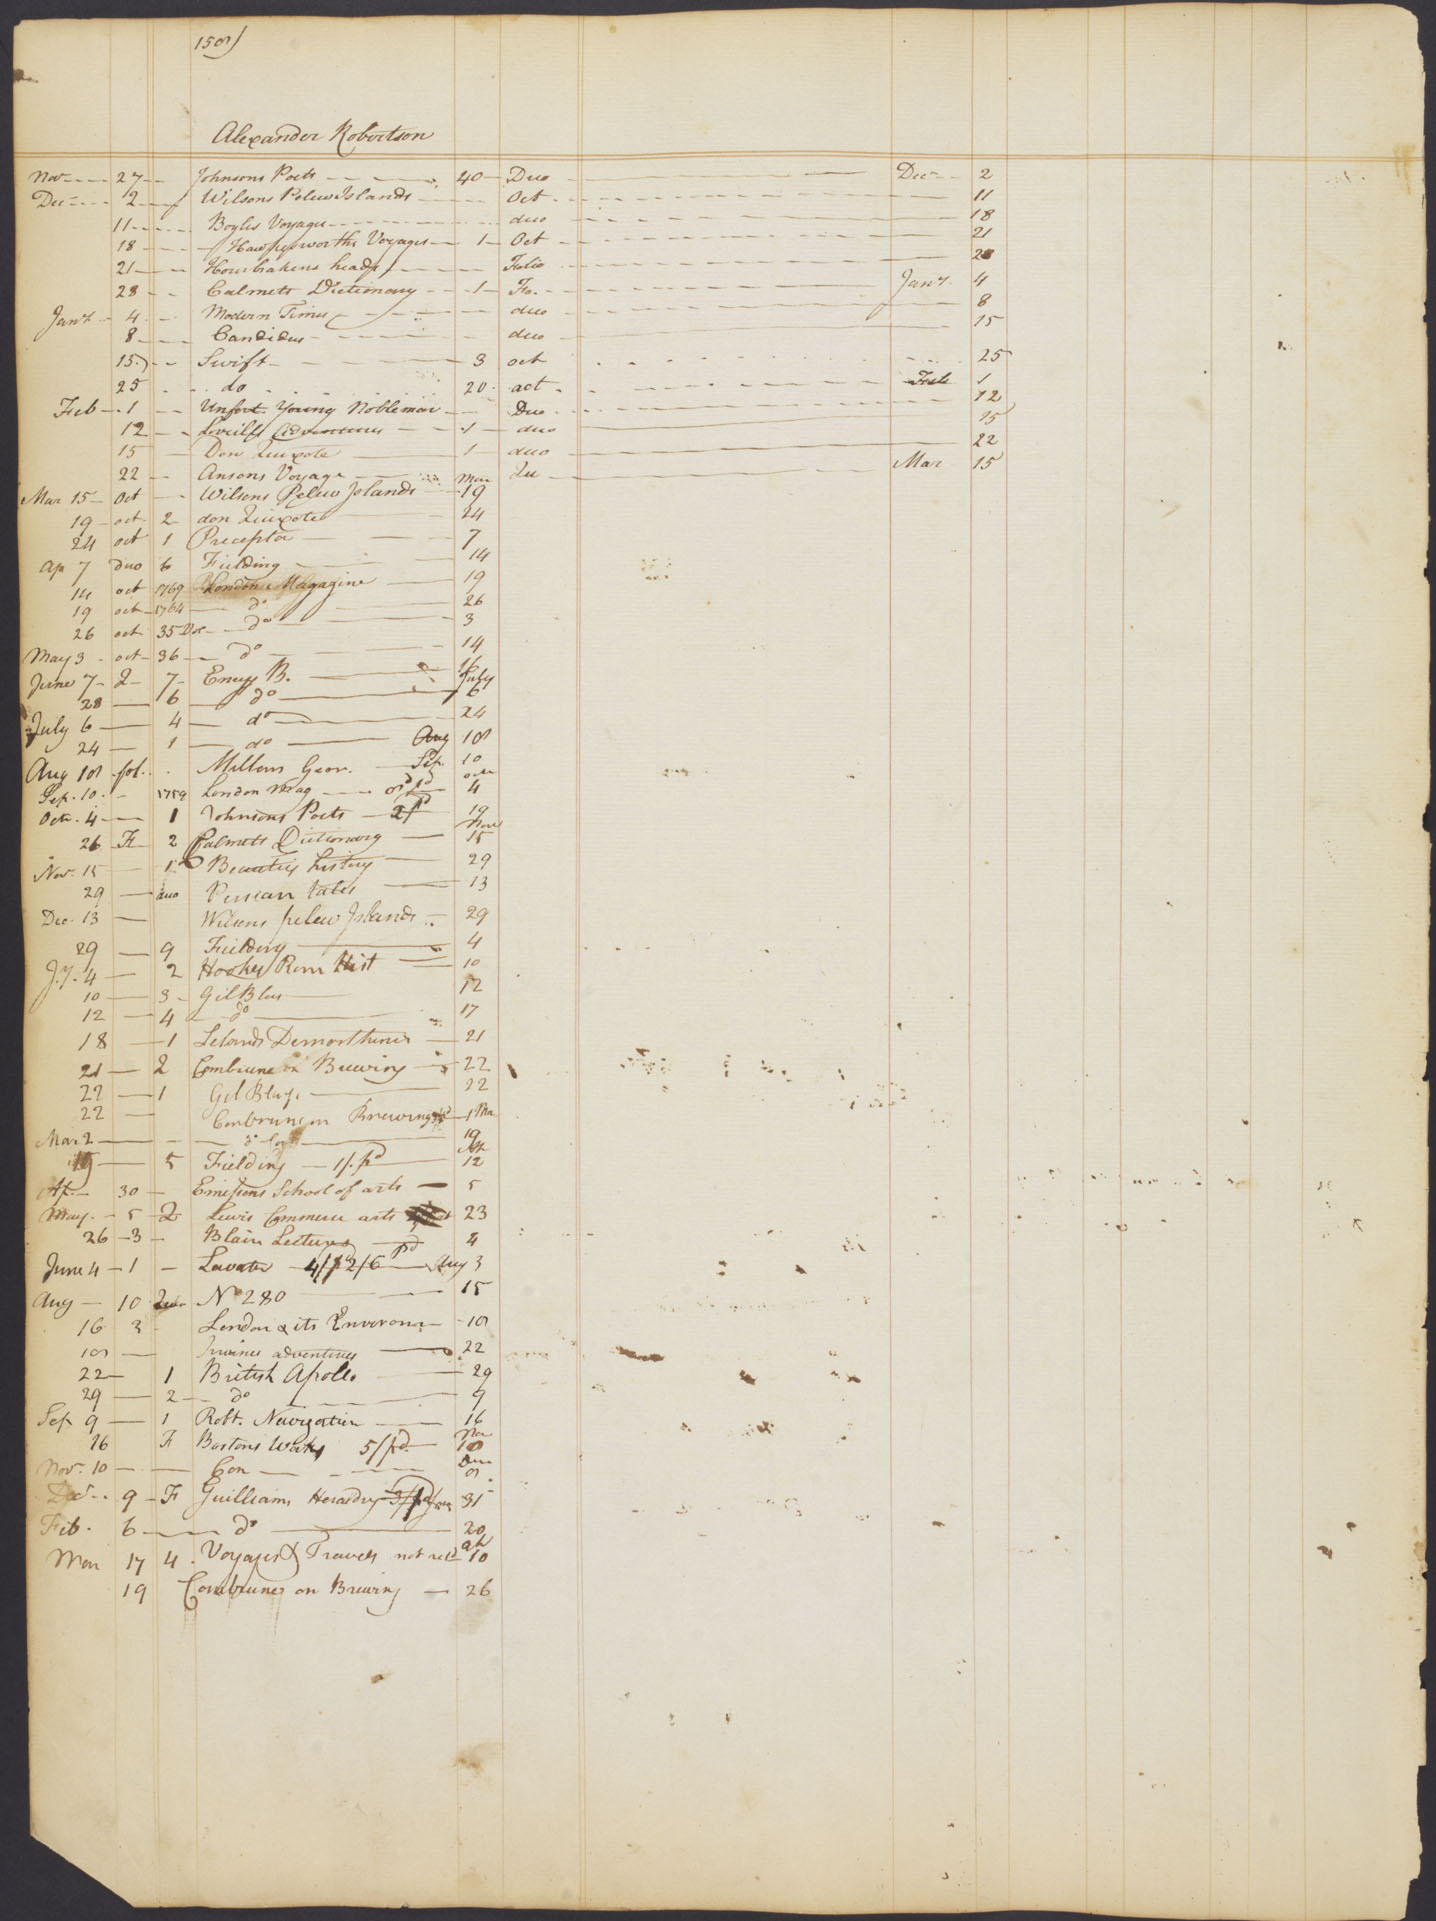 Alexander Robertson
Nov 27 Johnsons Poets 40 Duo Dec 2
Dec 2 Wilsons Pelew Islands Oct 11
11 Boyles Voyages duo 18
18 Hawkesworths Voyages 1 Oct 21
21 Houbrakens heads Folio 28
28 Calmets Dictionary 1 Fo. Jany 4
Jany 4 Modern Times duo 8
8 Candidus duo 15
15 Swift 3 oct 25
25 do 20 oct Feb 1
Feb 1 Unfort. Young Nobleman Duo 12
12 Adventures 1 duo 15
15 Don Quixote 1 duo 22
22 Ansons Voyage Qu Mar 15
Mar 15 Oct Wilsons Pelew Islands Mar 19
19 oct 2 don Quixote 24
24 oct 1 Preceptor 7
Ap 7 duo 6 Fielding 14
14 oct 1769 London Magazine 19
19 oct 1764 do 26
26 oct 35 do 3
May 3 oct 36 do 14
June 7 2 7 Ency B. 16
28 6 do July 6
July 6 4 do 24
24 1 do Aug 18
Aug 18 fol. Geor. Sep. 10
Sep. 10 1759 London Mag Octr 4
Octr. 4 1 Johnsons Poets 2/ pd 19
26 F 2 Calmets Dictionary Nov 15
Nov. 15 1 Beauties history 29
29 duo Persian tales 13
Dec. 13 Wilsons pelew Islands 29
29 9 Fielding 4
J.y. 4 2 Hookes Rom Hist 10
10 3 Gil Blas 12
12 4 do 17
18 1 Lelands Demosthenes 21
21 2 Combrune on Brewing 22
22 1 Gil Blas 22
22 Combrune on Brewing 1 Mar
Mar 2 do 19
19 5 Fielding 1/. pd Ap 12
Ap. 30 Emissons School of arts 5
May 5 2 Lewis Commerce arts 23
26 3 Blair Lectures 4
June 4 1 Lavater 4/ 2/6 pd Aug 3
Aug 10 No 280 15
16 3 London & its Environs 18
18 adventures 22
22 1 British Apollo 29
29 2 do 9
Sep 9 1 Robt. Navigation 16
16 F Bostons Works 5/ pd. Nov 10
Nov. 10 Con
Decr 9 F Guilliams Heraldry 31
Feb. 6 do 20
Mar 17 4 Voyages & Travels not retd 10
19 Combrunes on Brewing 26